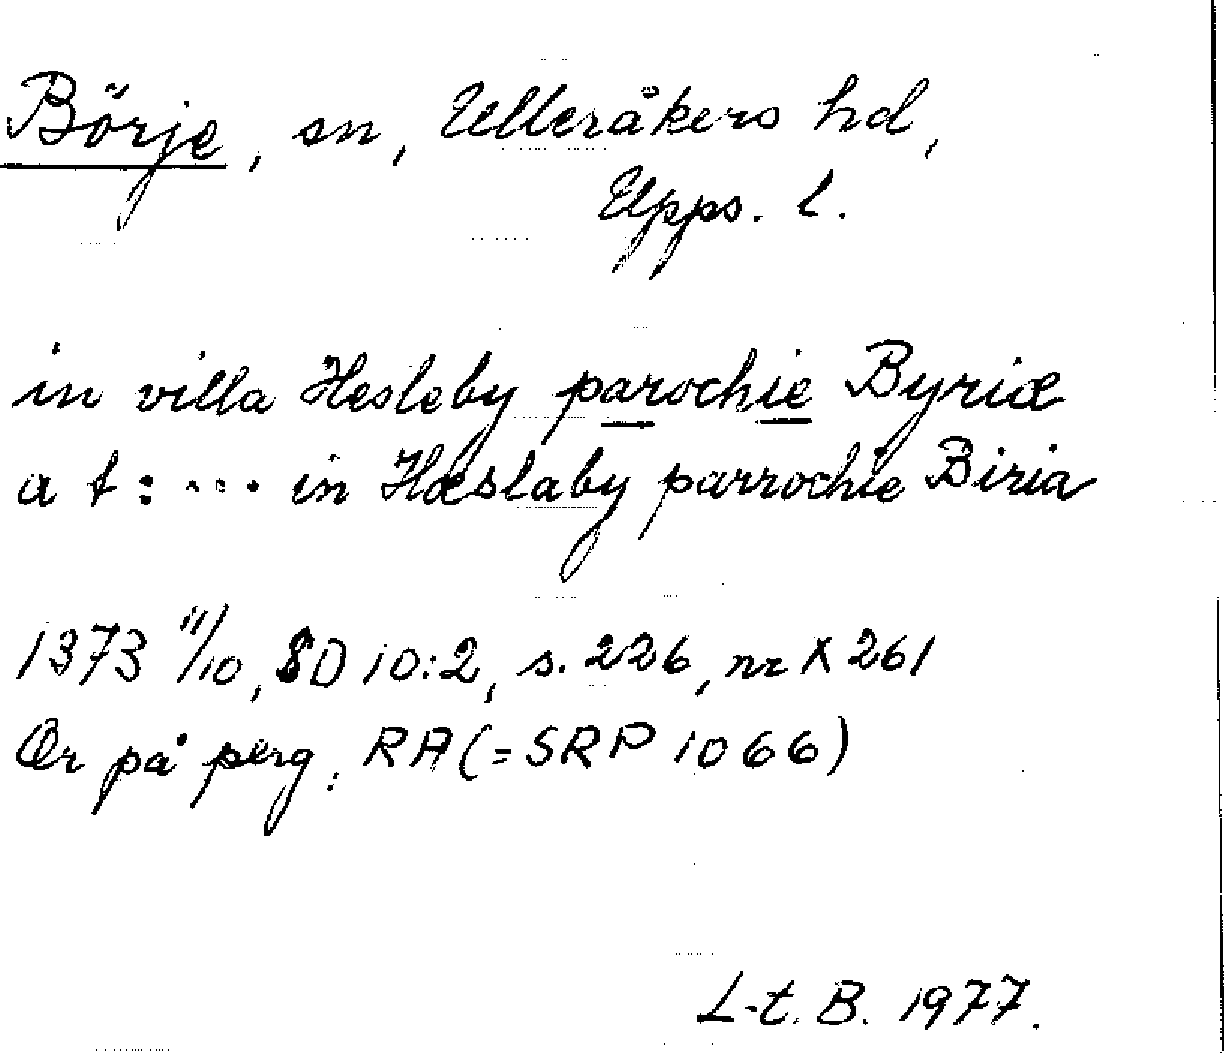 Börje, sn, Ulleråkers hd,
Upps. l.
in villa Hesleby parochie Byriæ
a t: ... in Hæslaby parrochie Biria
1373 11/10, SD 10:2, s. 226, nr X 261
Or på perg. RA (= SRP 1066)
L-t. B. 1977.